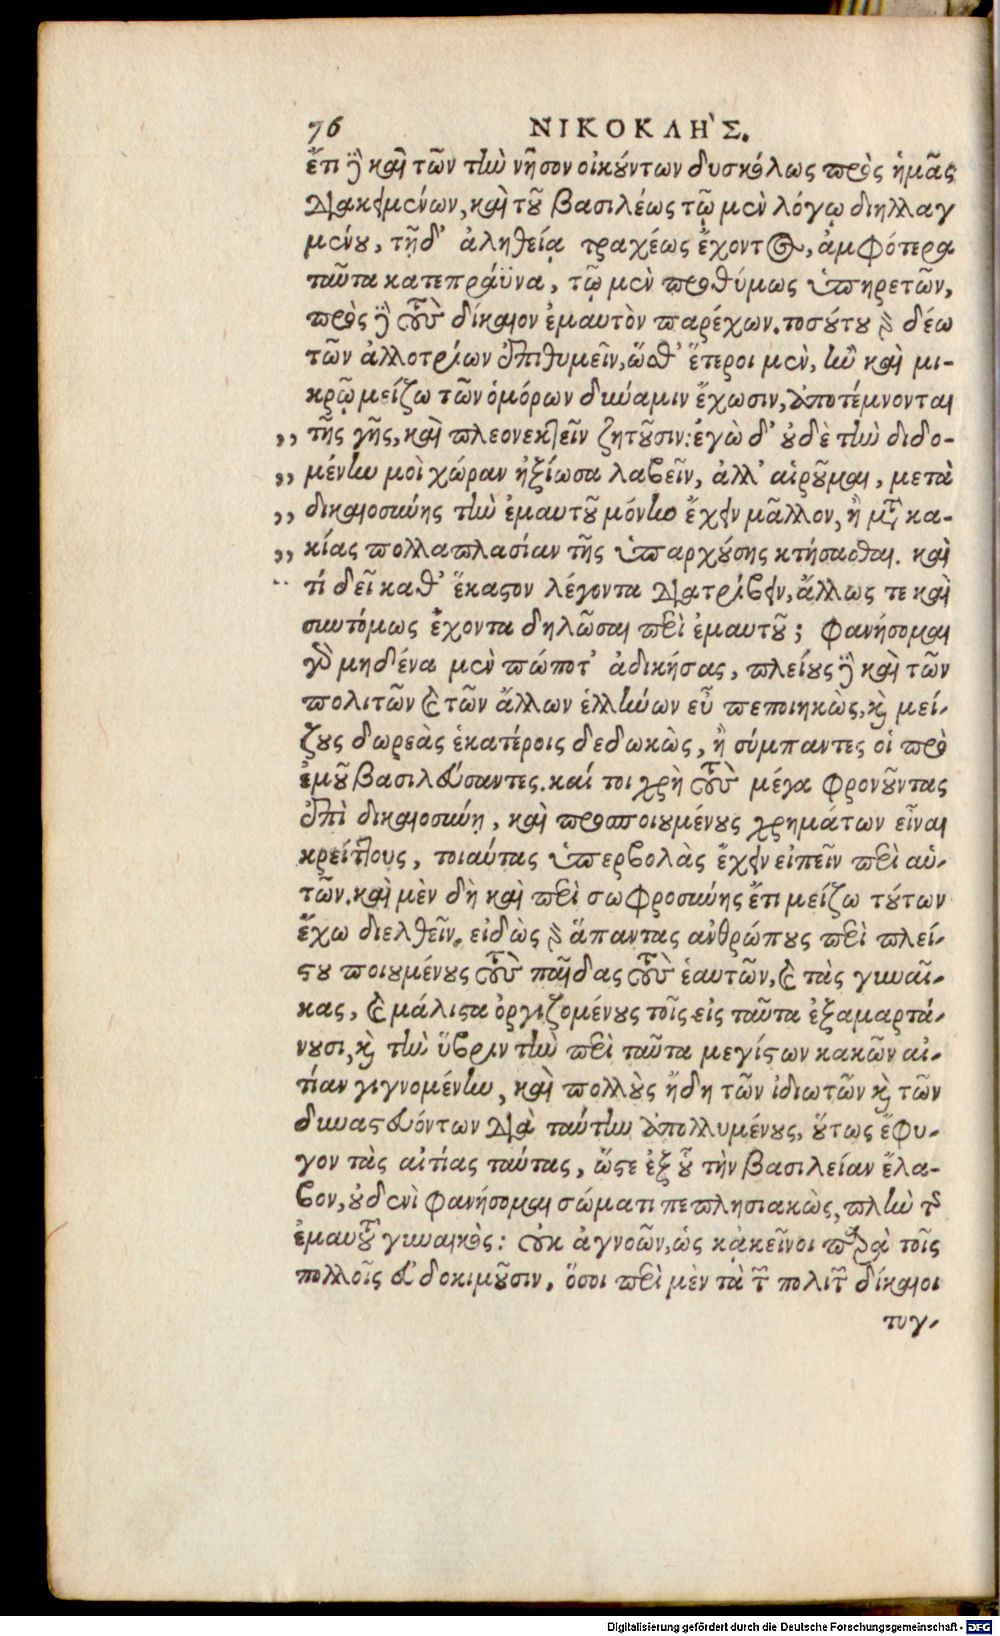 76 ΝΙΚΟΚΛΗ'Σ.
ἔτι ἢ καὶ τῶν τὴν νῆσον οἰκούντων δυσκόλως πρὸς ἡμᾶς
διακειμένων, καὶ τοῦ βασιλέως τῷ μὲν λόγῳ διηλλαγ
μένου, τῇ δ' ἀληθείᾳ τραχέως ἔχοντος, ἀμφότερα
ταῦτα κατεπράϋνα, τῷ μὲν προθύμως ὑπηρετῶν,
πρὸς δὲ τοὺς δίκαιον ἐμαυτὸν παρέχων. τοσούτου γὰρ δέω
τῶν ἀλλοτρίων ἐπιθυμεῖν, ὥσθ' ἕτεροι μὲν, ἢν καὶ μι-
κρῷ μείζω τῶν ὁμόρων δύναμιν ἔχωσιν, ἀποτέμνονται
,, τῆς γῆς, καὶ πλεονεκτεῖν ζητοῦσιν: ἐγὼ δ' οὐδὲ τὴν διδο-
,, μένην μοὶ χώραν ἠξίωσα λαβεῖν, ἀλλ' αἱροῦμαι, μετὰ
,, δικαιοσύνης τὴν ἐμαυτοῦ μόνην ἔχειν μᾶλλον, ἢ μετὰ κα-
,, κίας πολλαπλασίαν τῆς ὑπαρχούσης κτήσασθαι. καὶ
τί δεῖ καθ' ἕκαστον λέγοντα διατρίβειν, ἄλλως τε καὶ
συντόμως ἔχοντα δηλῶσαι περὶ ἐμαυτοῦ; φανήσομαι
γὰρ μηδένα μὲν πώποτ' ἀδικήσας, πλείους δὲ καὶ τῶν
πολιτῶν καὶ τῶν ἄλλων ἑλλήνων εὖ πεποιηκὼς, καὶ μεί-
ζους δωρεὰς ἑκατέροις δεδωκὼς, ἢ σύμπαντες οἱ πρὸ
ἐμοῦ βασιλεύσαντες. καί τοι χρὴ τοὺς μέγα φρονοῦντας
ἐπὶ δικαιοσύνῃ, καὶ προσποιουμένους χρημάτων εἶναι
κρείττους, τοιαύτας ὑπερβολὰς ἔχειν εἰπεῖν περὶ αὑ-
τῶν. καὶ μὲν δὴ καὶ περὶ σωφροσύνης ἔτι μείζω τούτων
ἔχω διελθεῖν. εἰδὼς γὰρ ἅπαντας ἀνθρώπους περὶ πλεί-
στου ποιουμένους τοὺς παῖδας τοὺς ἑαυτῶν, καὶ τὰς γυναῖ-
κας, καὶ μάλιστα ὀργιζομένους τοῖς εἰς ταῦτα ἐξαμαρτά-
νουσι, καὶ τὴν ὕβριν τὴν περὶ ταῦτα μεγίστων κακῶν αἰ-
τίαν γιγνομένην, καὶ πολλοὺς ἤδη τῶν ἰδιωτῶν καὶ τῶν
δυναστευόντων διὰ ταύτην ἀπολλυμένους, οὕτως ἔφυ-
γον τὰς αἰτίας ταύτας, ὥστε ἐξ οὗ τὴν βασιλείαν ἔλα-
βον, οὐδενὶ φανήσομαι σώματι πεπλησιακὼς, πλὴν τῆς
ἐμαυτοῦ γυναικὸς: οὐκ ἀγνοῶν, ὡς κἀκεῖνοι παρὰ τοῖς
πολλοῖς εὐδοκιμοῦσιν, ὅσοι περὶ μὲν τὰ τῶν πολιτῶν δίκαιοι
τυγ-
Digitalisierung gefördert durch die Deutsche Forschungsgemeinschaft - DFG